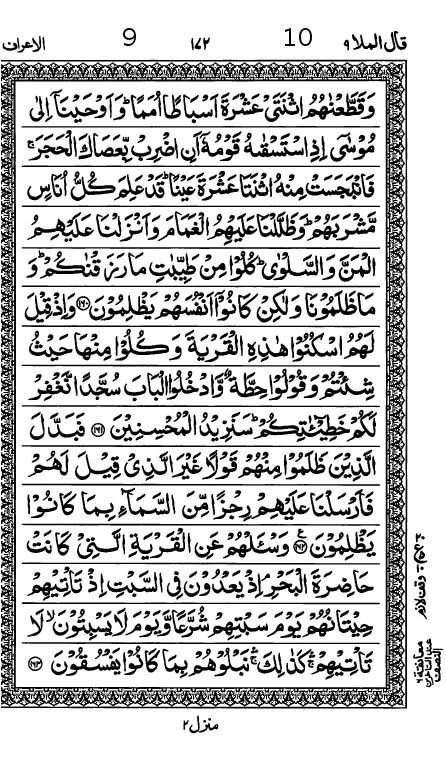 قال الملا ٩ 10 ١٧٢ 9 الاعراف
وَقَطَّعْنٰهُمُ اثْنَتَىْ عَشْرَةَ اَسْبَاطًا اُمَمًا ؕ وَ اَوْحَيْنَاۤ اِلٰى
مُوْسٰٓى اِذِ اسْتَسْقٰىهُ قَوْمُهٗۤ اَنِ اضْرِبْ بِّعَصَاكَ الْحَجَرَ ۚ
فَانْۢبَجَسَتْ مِنْهُ اثْنَتَا عَشْرَةَ عَيْنًا ؕ قَدْ عَلِمَ كُلُّ اُنَاسٍ
مَّشْرَبَهُمْ ؕ وَظَلَّلْنَا عَلَيْهِمُ الْغَمَامَ وَ اَنْزَلْنَا عَلَيْهِمُ
الْمَنَّ وَالسَّلْوٰى ؕ كُلُوْا مِنْ طَيِّبٰتِ مَا رَزَقْنٰكُمْ ؕ وَ
مَا ظَلَمُوْنَا وَلٰكِنْ كَانُوْۤا اَنْفُسَهُمْ يَظْلِمُوْنَ ﴿۱۶۰﴾ وَاِذْ قِيْلَ
لَهُمُ اسْكُنُوْا هٰذِهِ الْقَرْيَةَ وَكُلُوْا مِنْهَا حَيْثُ
شِئْتُمْ وَقُوْلُوْا حِطَّةٌ وَّادْخُلُوا الْبَابَ سُجَّدًا نَّغْفِرْ
لَكُمْ خَطِيْٓـٰٔتِكُمْ ؕ سَنَزِيْدُ الْمُحْسِنِيْنَ ﴿۱۶۱﴾ فَبَدَّلَ
الَّذِيْنَ ظَلَمُوْا مِنْهُمْ قَوْلًا غَيْرَ الَّذِىْ قِيْلَ لَهُمْ
فَاَرْسَلْنَا عَلَيْهِمْ رِجْزًا مِّنَ السَّمَآءِ بِمَا كَانُوْا
يَظْلِمُوْنَ ﴿۱۶۲﴾ ع وَسْئَلْهُمْ عَنِ الْقَرْيَةِ الَّتِىْ كَانَتْ
حَاضِرَةَ الْبَحْرِ ۘ اِذْ يَعْدُوْنَ فِى السَّبْتِ اِذْ تَاْتِيْهِمْ
حِيْتَانُهُمْ يَوْمَ سَبْتِهِمْ شُرَّعًا وَّيَوْمَ لَا يَسْبِتُوْنَ ۙ لَا
تَاْتِيْهِمْ ۛۚ كَذٰلِكَ ۛۚ نَبْلُوْهُمْ بِمَا كَانُوْا يَفْسُقُوْنَ ﴿۱۶۳﴾
وقف لازم
معانقة ٦
النصف
منزل ٢